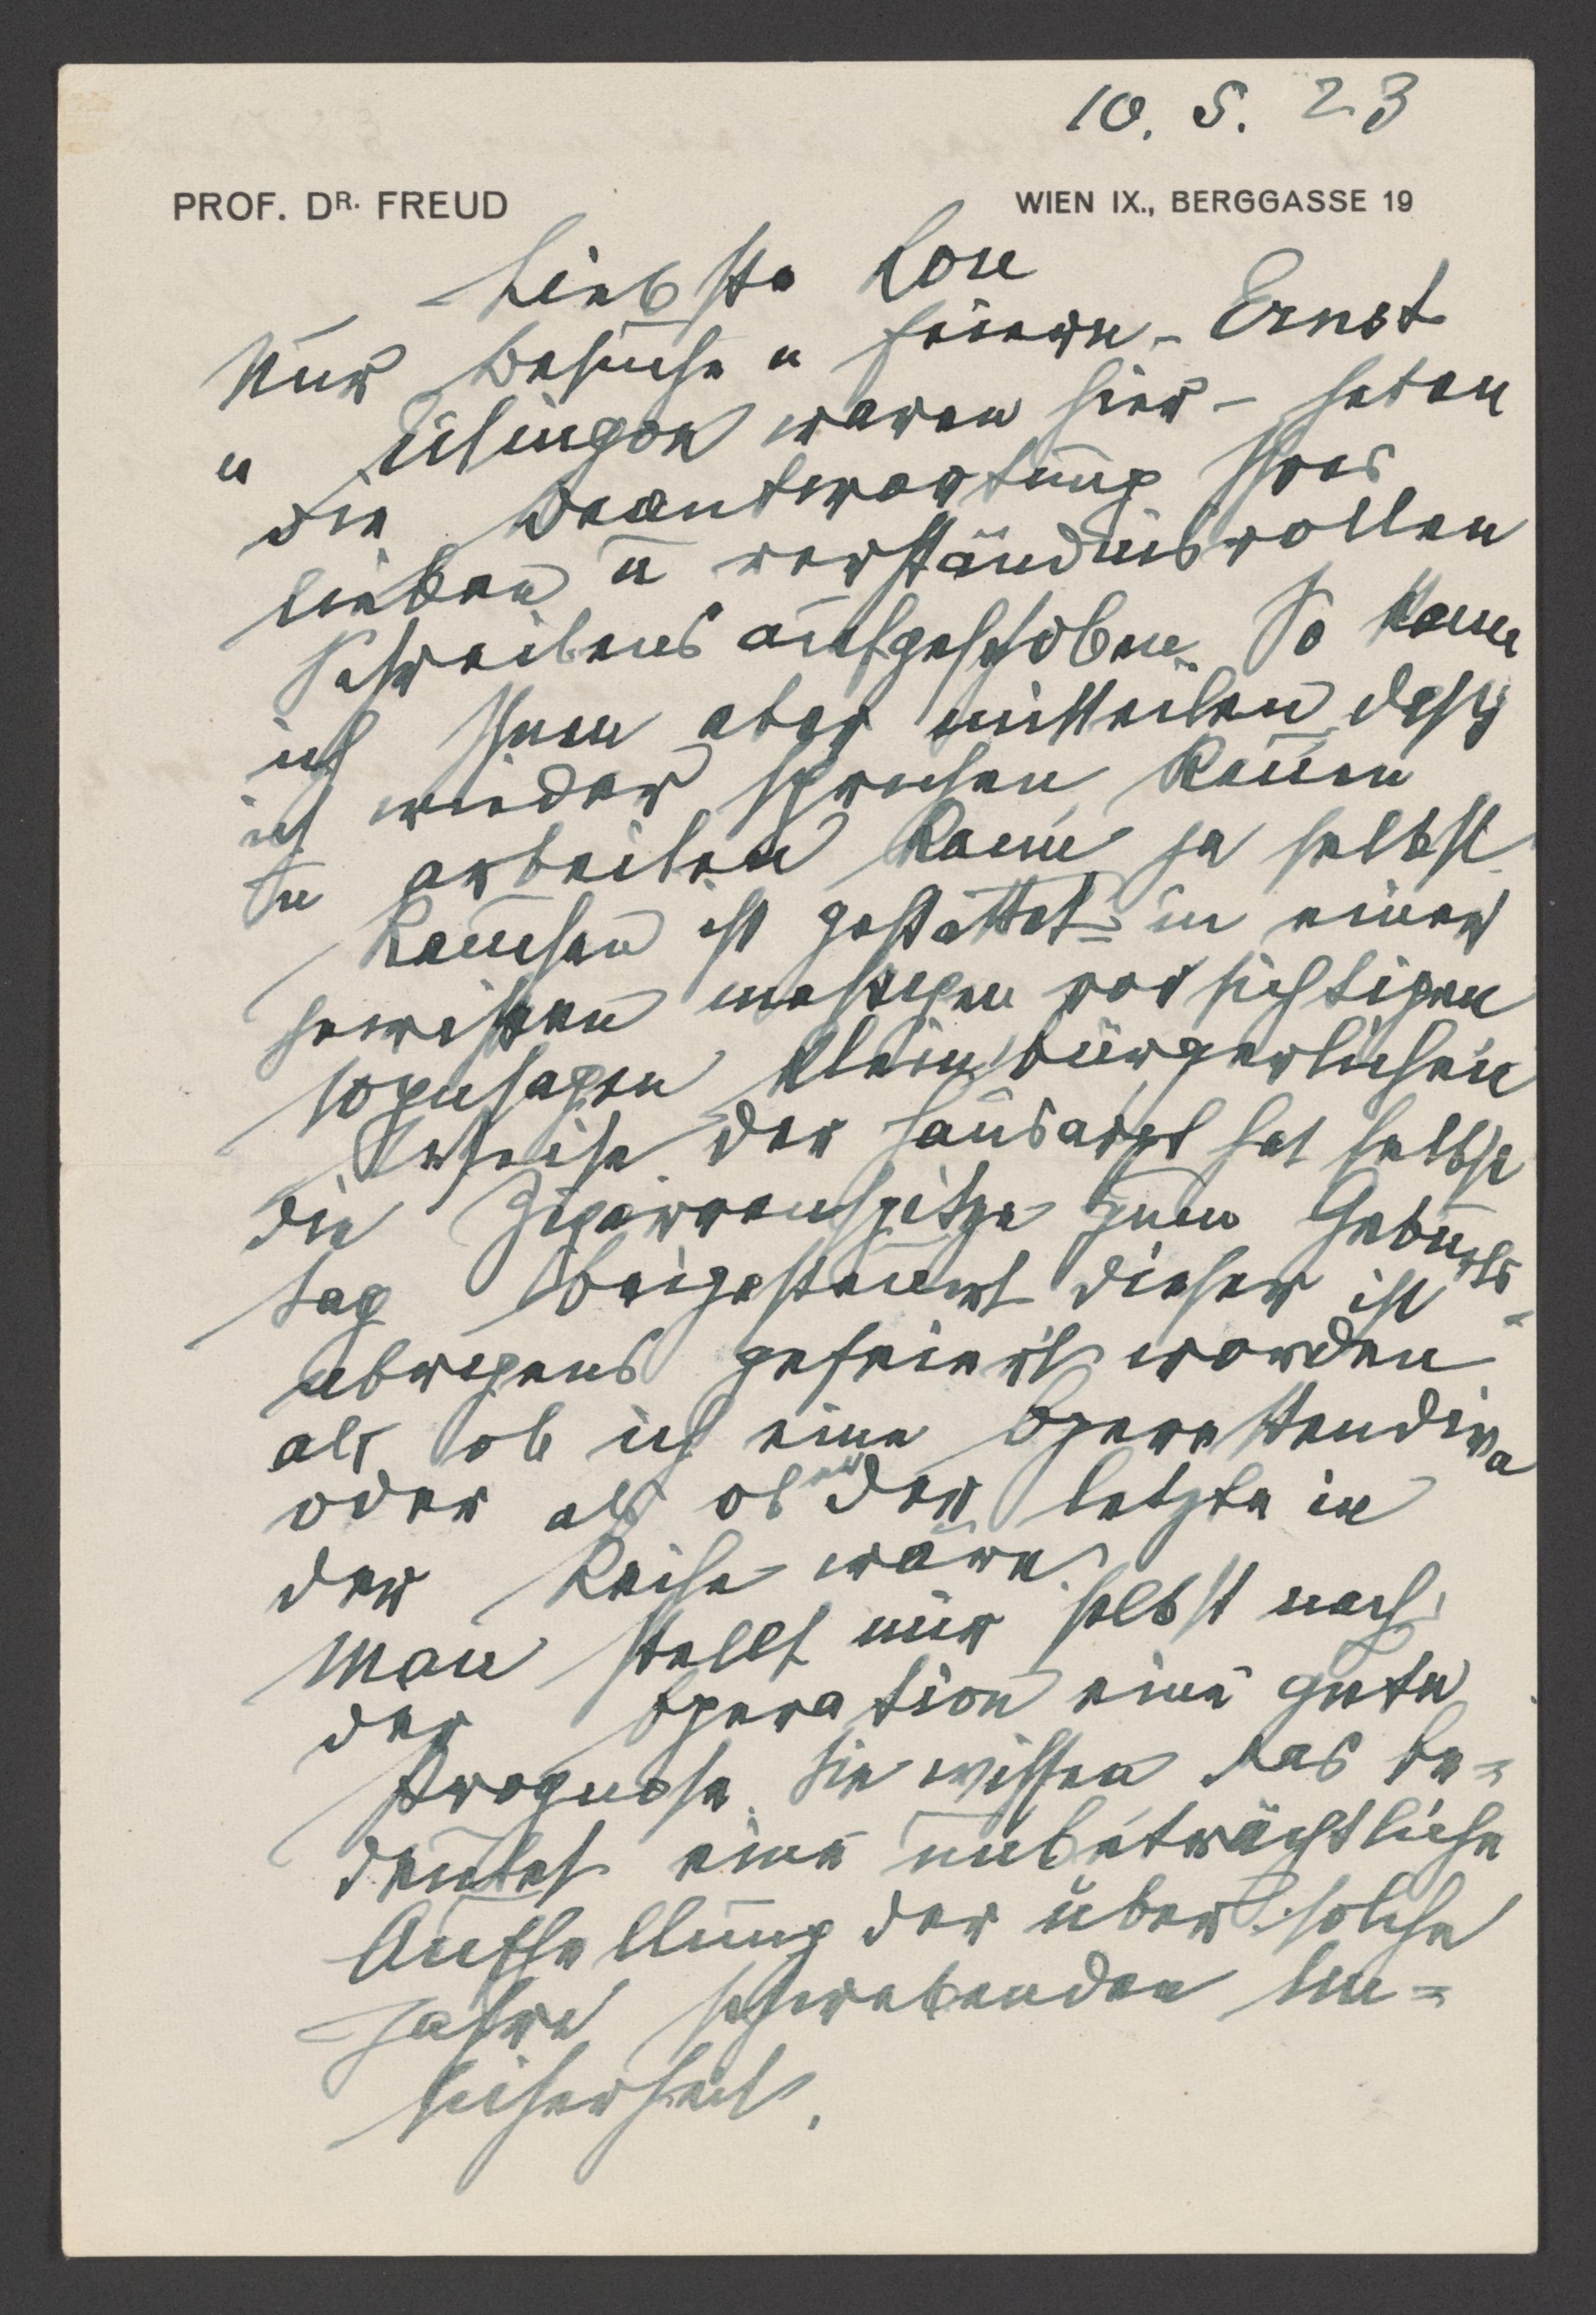 10. 5. 23
PROF. DR. FREUD WIEN IX., BERGGASSE 19
Liebste Lou
Nur Besuche u Feiern – Ernst
u Eitingon waren hier – haben
die Beantwortung Ihres
lieben u verständnisvollen
Schreibens aufgeschoben. So kann
ich Ihnen aber mitteilen daß
ich wieder sprechen, kauen
u arbeiten kann ja selbst
Rauchen ist gestattet – in einer
gewissen massigen vorsichtigen
sozusagen kleinbürgerlichen
Weise. Der Hausarzt hat selbst
die Zigarrenspitze zum Geburts-
tag beigesteuert. Dieser ist
übrigens gefeiert worden
als ob ich eine Operettendiva
oder als ob er der letzte in
der Reihe wäre.
Man stellt mir selbst nach
der Operation eine gute
Prognose. Sie wissen das be=
deutet eine unbeträchtliche
Aufhellung der über solche
Jahre schwebenden Un=
sicherheit.